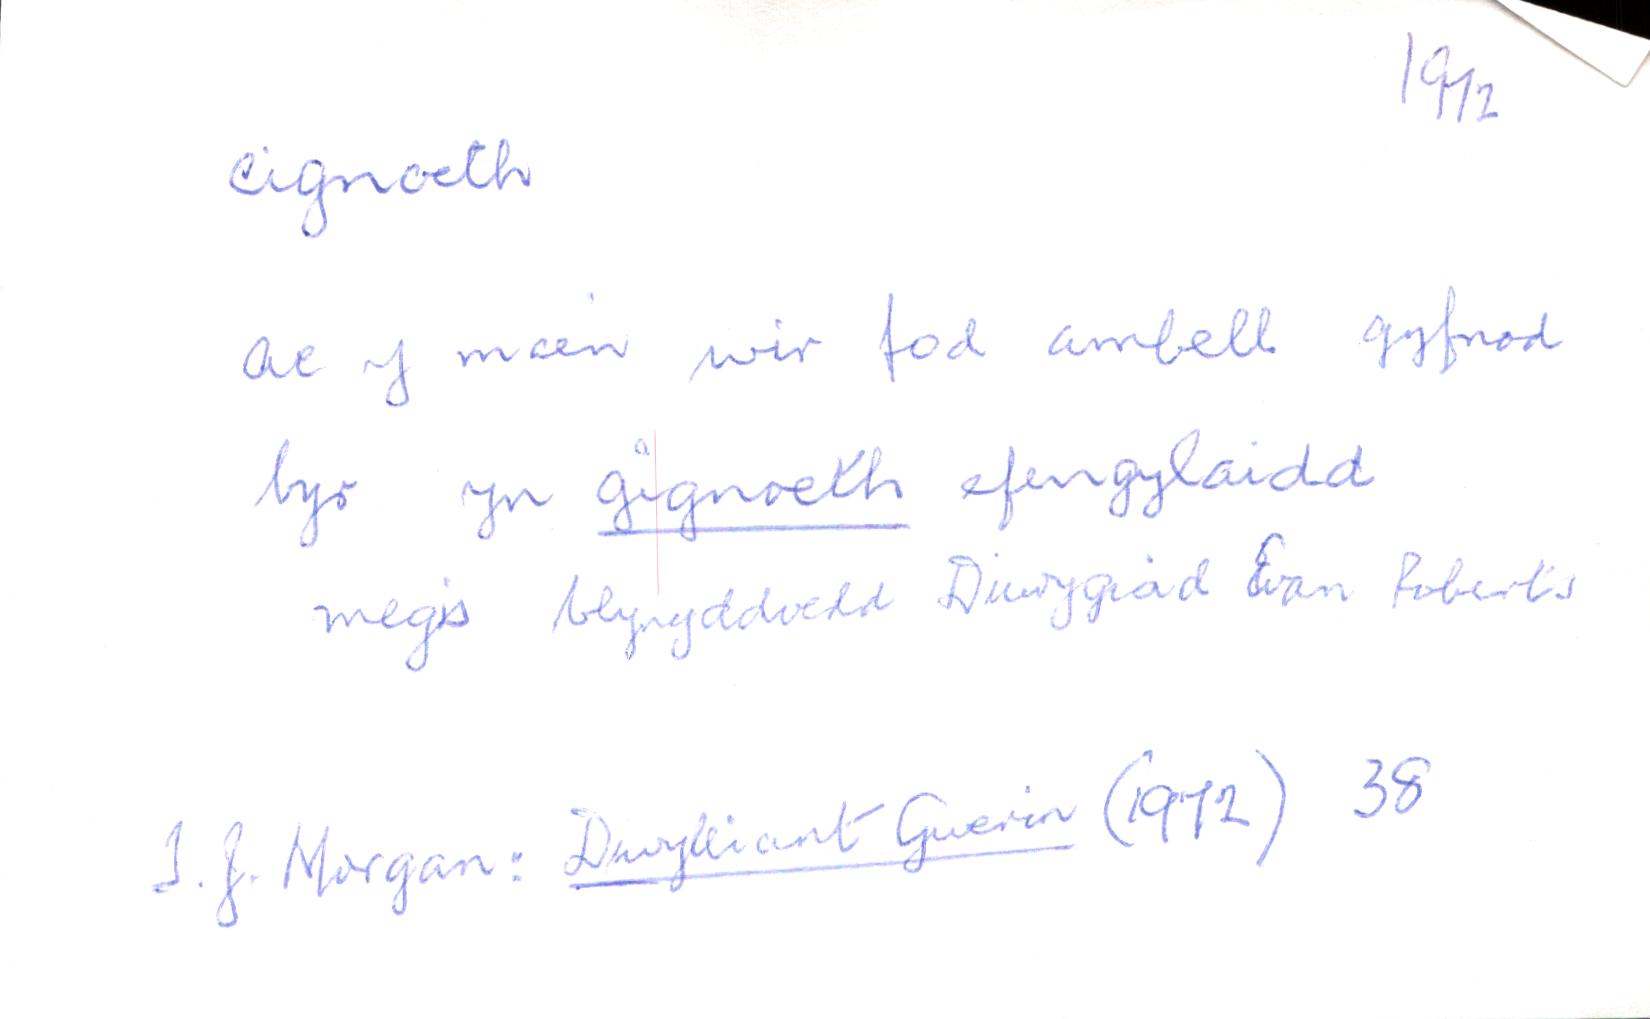 1972
cignoeth
ac y mae'n wir fod ambell gyfnod
byr yn gignoeth efengylaidd
megis blynyddoedd Diwygiad Evan Roberts
T. J. Morgan: Diwylliant Gwerin (1972) 38